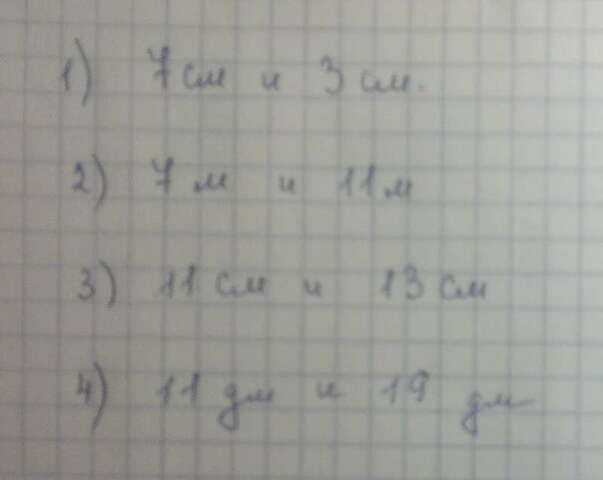 1) 7 см и 3 см.
2) 7 м и 11 м
3) 11 см и 13 см
4) 11 дм и 19 дм